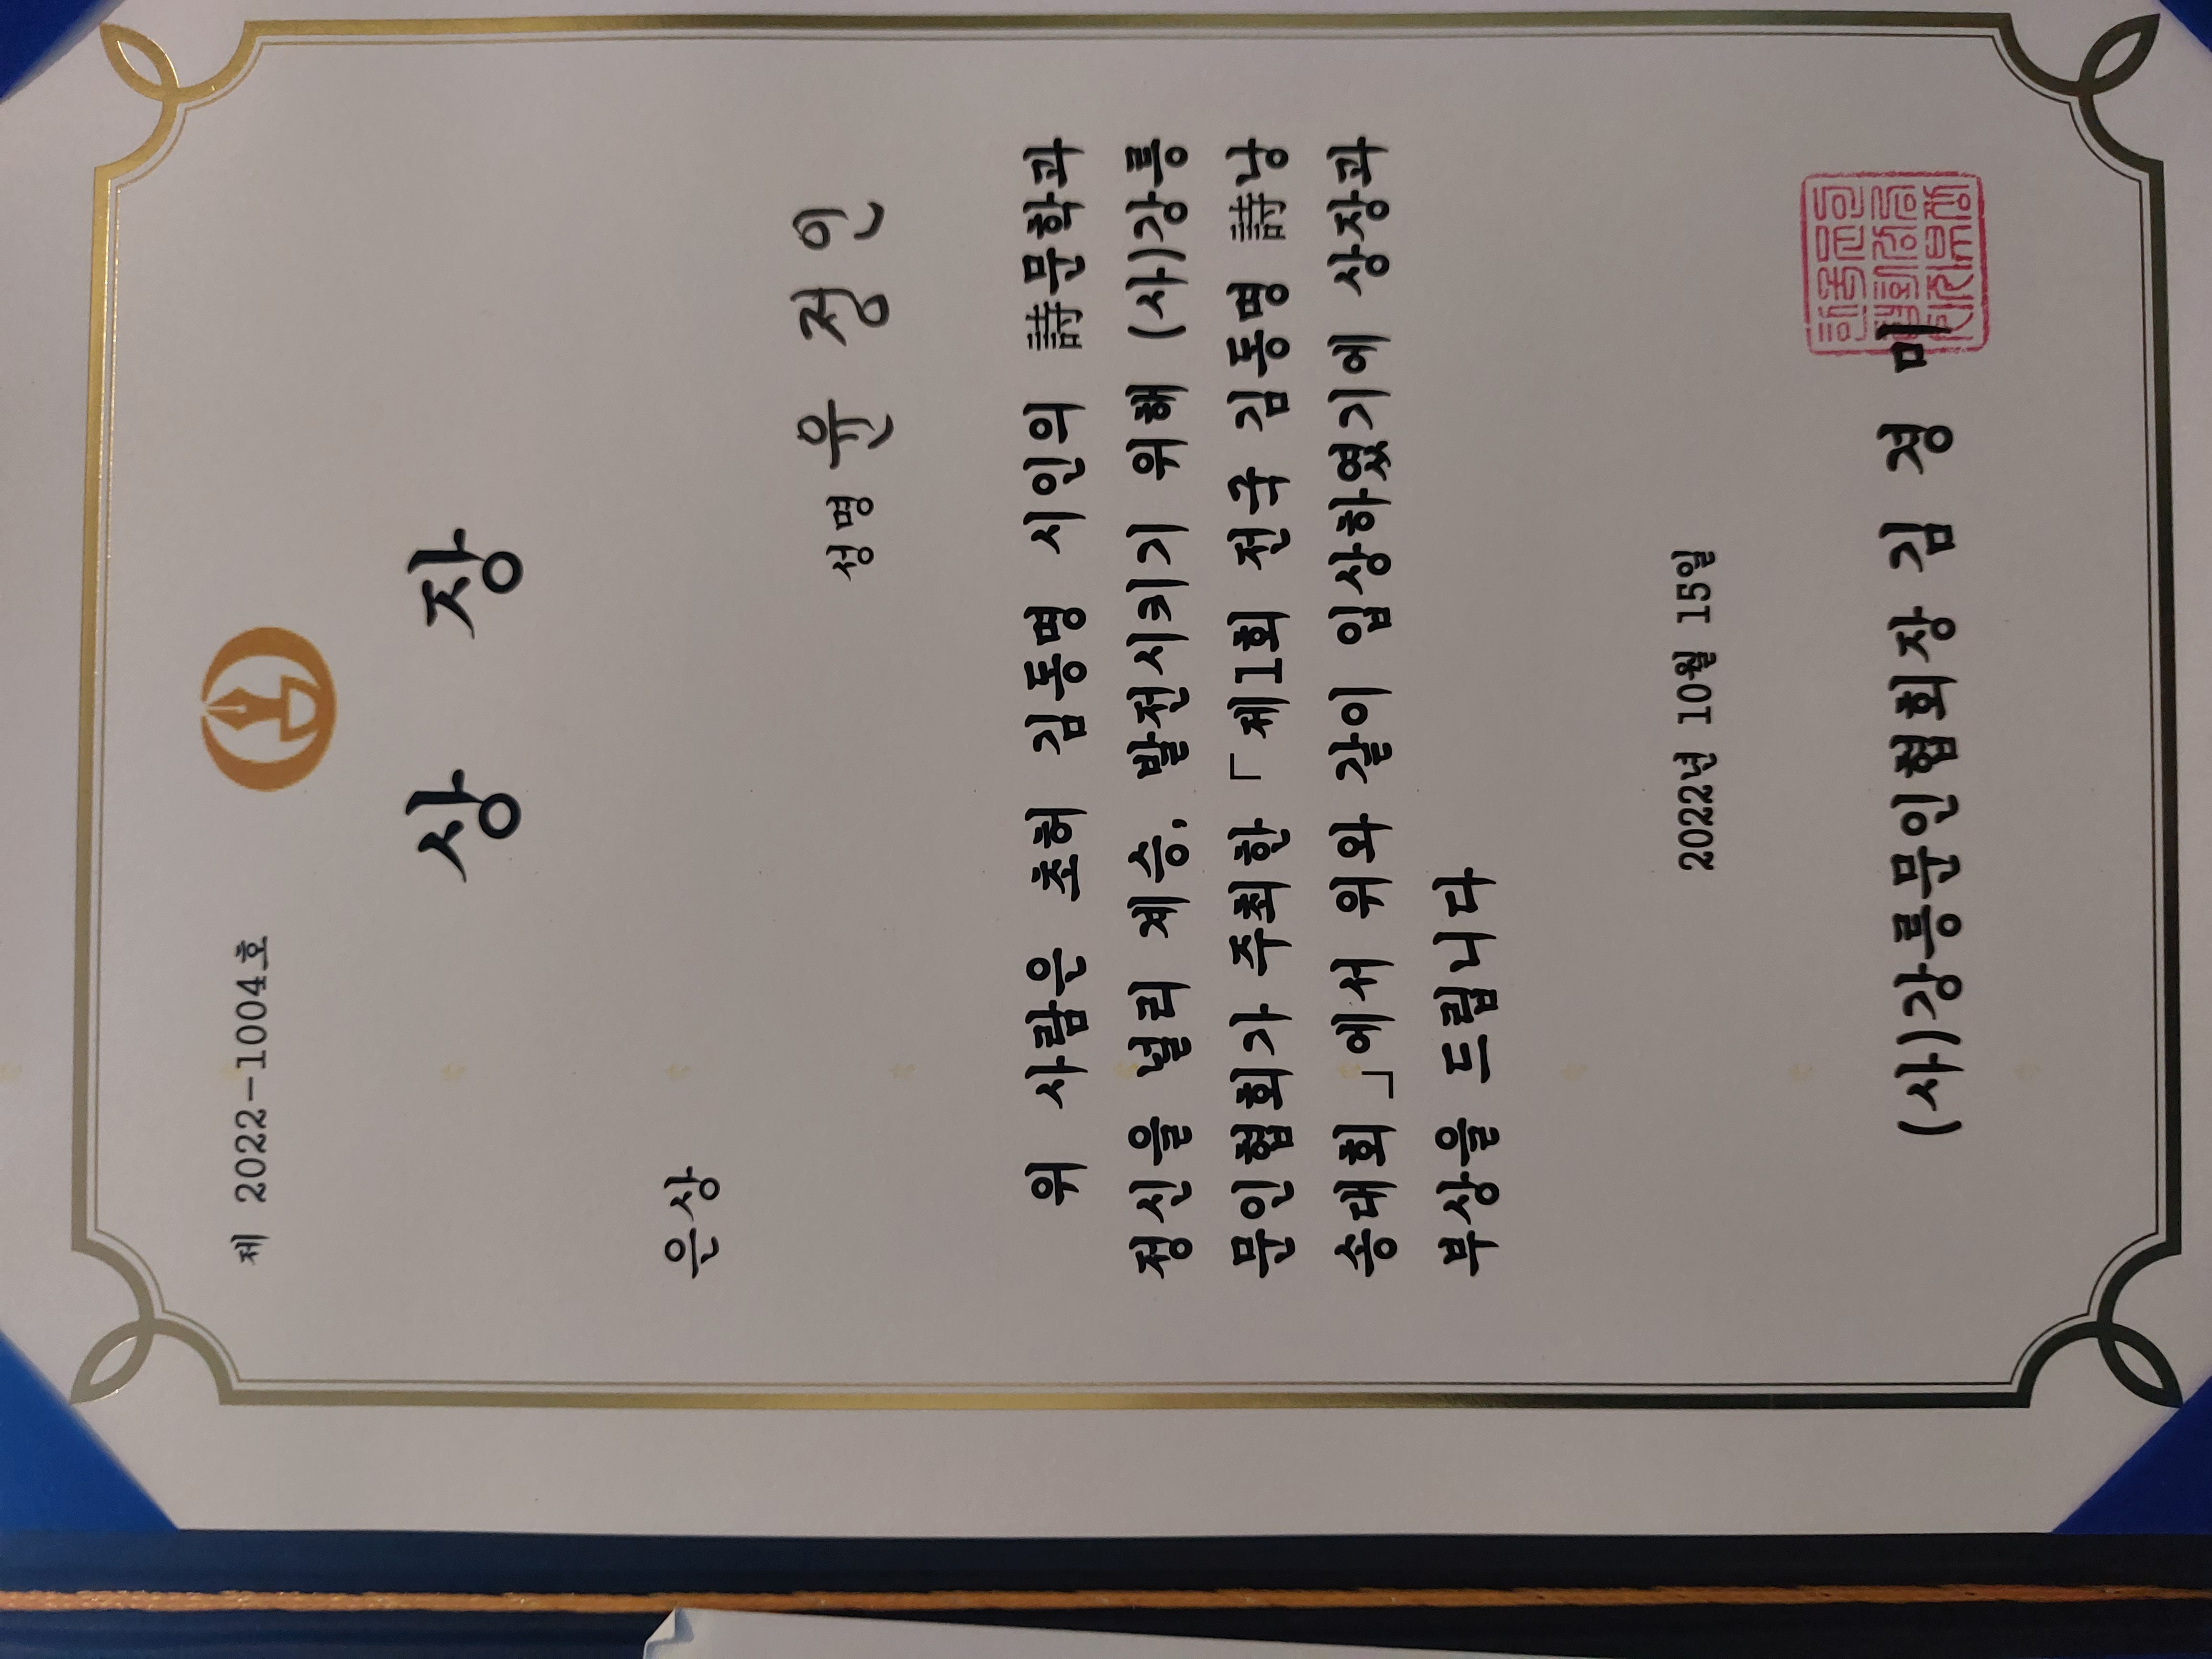 제 2022-1004호
상 장
은상
성명 윤정인
위 사람은 초허 김동명 시인의 詩문학과
정신을 널리 계승, 발전시키기 위해 (사)강릉
문인협회가 주최한 「제1회 전국 김동명 詩낭
송대회」에서 위와 같이 입상하였기에 상장과
부상을 드립니다
2022년 10월 15일
(사)강릉문인협회장 김 경 미